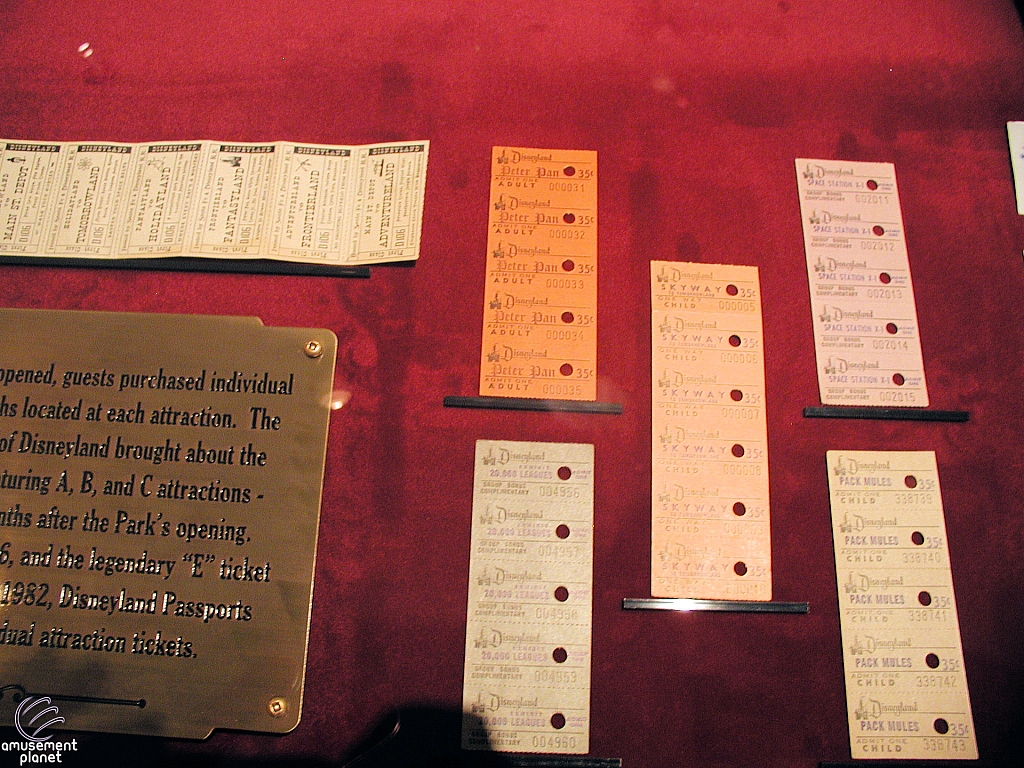 DISNEYLAND DISNEYLAND DISNEYLAND DISNEYLAND DISNEYLAND DISNEYLAND
MAIN ST. DEPOT
TO
TOMORROWLAND
HOLIDAYLAND
FANTASYLAND
FRONTIERLAND
ADVENTURELAND
opened, guests purchased individual
hs located at each attraction. The
of Disneyland brought about the
turing A, B, and C attractions -
nths after the Park's opening.
6, and the legendary "E" ticket
1982, Disneyland Passports
dual attraction tickets.
Disneyland
Peter Pan 35¢
ADMIT ONE
ADULT 000031
Disneyland
Peter Pan 35¢
ADMIT ONE
ADULT 000032
Disneyland
Peter Pan 35¢
ADMIT ONE
ADULT 000033
Disneyland
Peter Pan 35¢
ADMIT ONE
ADULT 000034
Disneyland
Peter Pan 35¢
ADMIT ONE
ADULT 000035
Disneyland
EXHIBIT
20,000 LEAGUES
GROUP BONUS
COMPLIMENTARY 004956
Disneyland
EXHIBIT
20,000 LEAGUES
GROUP BONUS
COMPLIMENTARY 004957
Disneyland
EXHIBIT
20,000 LEAGUES
GROUP BONUS
COMPLIMENTARY 004958
Disneyland
EXHIBIT
20,000 LEAGUES
GROUP BONUS
COMPLIMENTARY 004959
Disneyland
EXHIBIT
20,000 LEAGUES
GROUP BONUS
COMPLIMENTARY 004960
Disneyland
SKYWAY 35¢
ONE WAY
CHILD 000005
Disneyland
SKYWAY 35¢
ONE WAY
CHILD 000006
Disneyland
SKYWAY 35¢
ONE WAY
CHILD 000007
Disneyland
SKYWAY 35¢
ONE WAY
CHILD 000008
Disneyland
SKYWAY 35¢
ONE WAY
CHILD
Disneyland
SKYWAY 35¢
ONE WAY
CHILD
Disneyland
SPACE STATION X-1
GROUP BONUS
COMPLIMENTARY 002011
Disneyland
SPACE STATION X-1
GROUP BONUS
COMPLIMENTARY 002012
Disneyland
SPACE STATION X-1
GROUP BONUS
COMPLIMENTARY 002013
Disneyland
SPACE STATION X-1
GROUP BONUS
COMPLIMENTARY 002014
Disneyland
SPACE STATION X-1
GROUP BONUS
COMPLIMENTARY 002015
Disneyland
PACK MULES 35¢
ADMIT ONE
CHILD 338739
Disneyland
PACK MULES 35¢
ADMIT ONE
CHILD 338740
Disneyland
PACK MULES 35¢
ADMIT ONE
CHILD 338741
Disneyland
PACK MULES 35¢
ADMIT ONE
CHILD 338742
Disneyland
PACK MULES 35¢
ADMIT ONE
CHILD 338743
amusement
planet